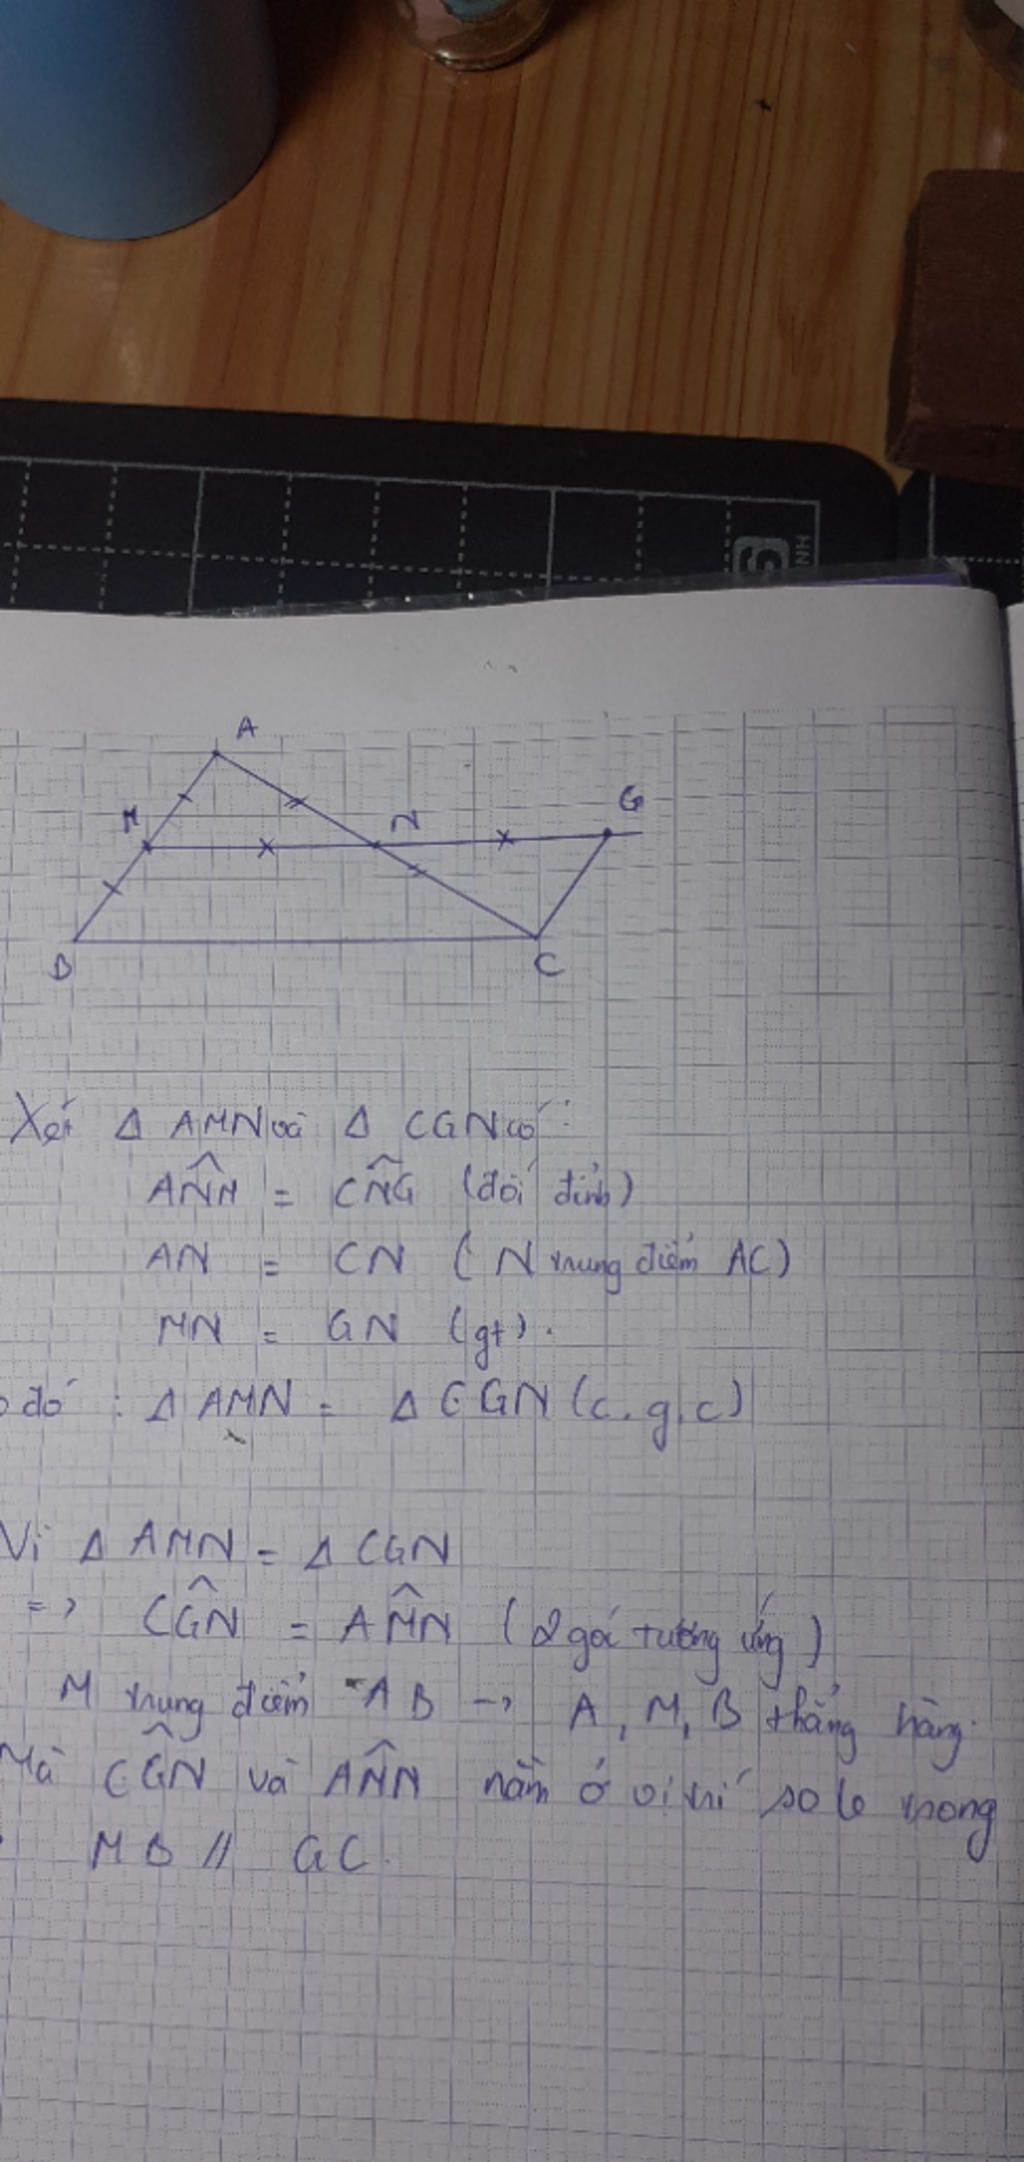 A
M
N
G
B
C
Xét Δ AMN và Δ CGN có:
AN̂M = CN̂G (đối đỉnh)
AN = CN (N trung điểm AC)
MN = GN (gt).
đó : Δ AMN = Δ CGN (c.g.c)
Vì Δ AMN = Δ CGN
=> CĜN = AM̂N (2 góc tương ứng)
M trung điểm AB -> A, M, B thẳng hàng.
Mà CĜN và AM̂N nằm ở vị trí so le trong
MB // GC.